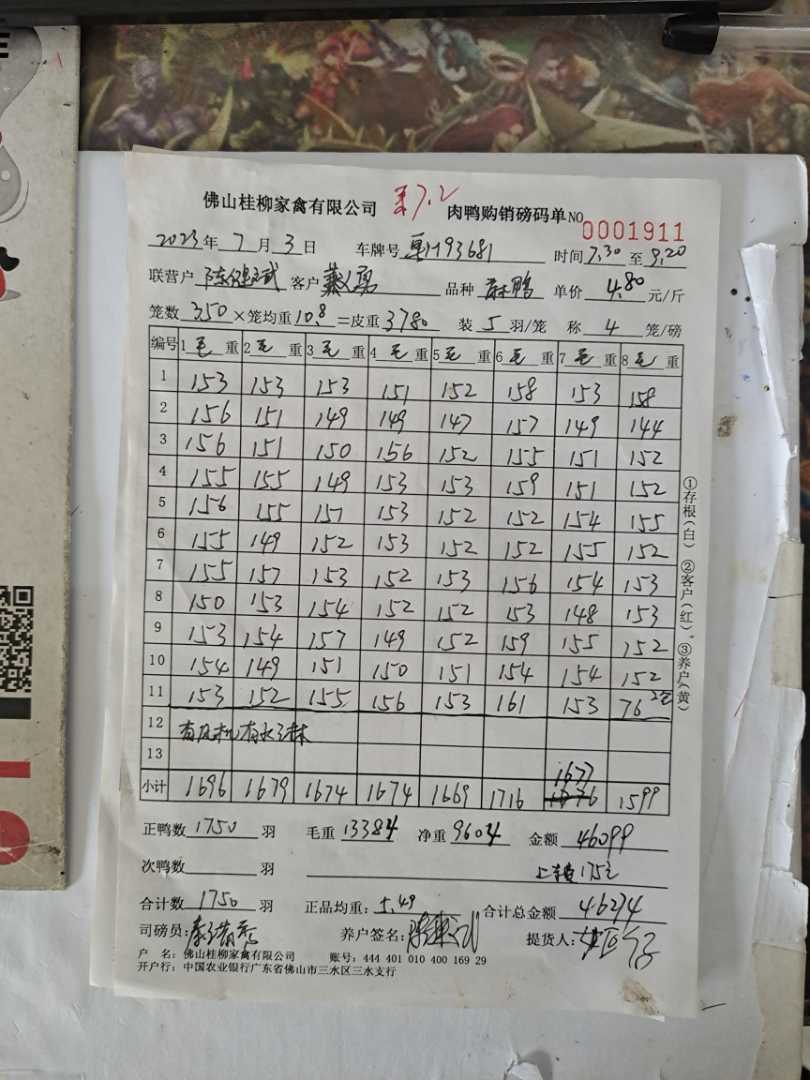 佛山桂柳家禽有限公司 肉鸭购销磅码单 NO 0001911
2023年7月3日 车牌号 93681 时间 7.30 至 9.20
联营户 陈健武 客户 勇 品种 麻鸭 单价 4.80 元/斤
笼数 350 ×笼均重 10.8 =皮重 3780 装 5 羽/笼 称 4 笼/磅
编号 1 毛 重 2 毛 重 3 毛 重 4 毛 重 5 毛 重 6 毛 重 7 毛 重 8 毛 重
1 153 153 153 151 152 158 153 158
2 156 151 149 149 147 157 149 144
3 156 151 150 156 152 155 151 152
4 155 155 149 153 153 159 151 152
5 156 155 151 153 152 152 154 155
6 155 149 152 153 152 152 155 152
7 155 157 153 152 153 156 154 153
8 150 153 154 152 152 153 148 153
9 153 154 157 149 152 159 155 152
10 154 149 151 150 151 154 154 152
11 153 152 155 156 153 161 153 76 2笼
12 有风机有水淋
13
小计 1696 1679 1674 1674 1669 1716 1677 1599
正鸭数 1750 羽 毛重 13384 净重 9604 金额 46099
次鸭数 羽 上车费175元
合计数 1750 羽 正品均重: 5.49 合计总金额 46274
司磅员: 养户签名: 提货人:
户 名: 佛山桂柳家禽有限公司 账号: 444 401 010 400 169 29
开户行: 中国农业银行广东省佛山市三水区三水支行
①存根(白) ②客户(红) ③养户(黄)